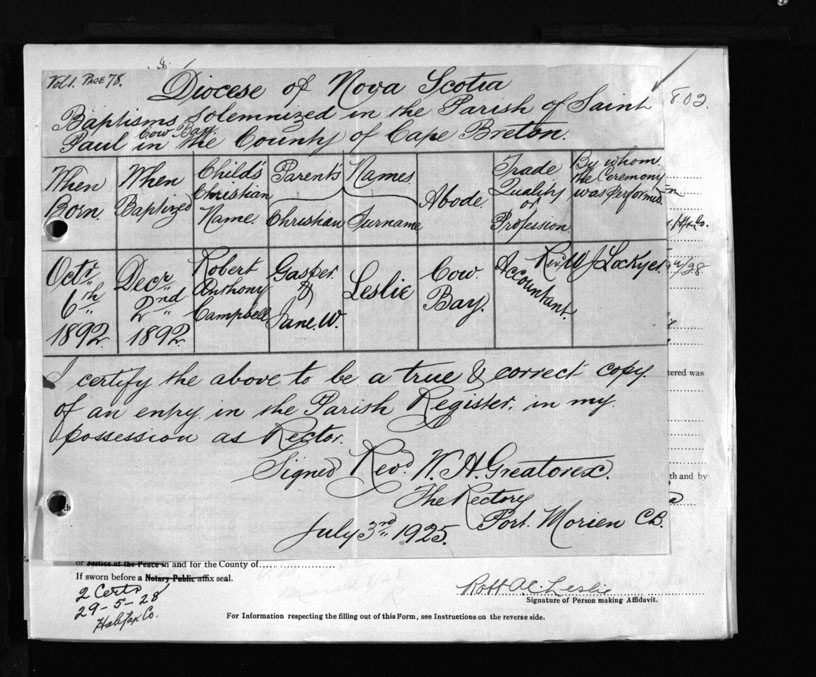 Vol 1. Page 78.
Diocese of Nova Scotia
802.
Baptisms Solemnized in the Parish of Saint
Cow Bay.
Paul in the County of Cape Breton.
When Born.
When Baptized
Child's Christian Name.
Parent's Names
Christian Surname
Abode.
Trade Quality or Profession
By whom the Ceremony was performed.
Octr 6th 1892
Decr 2nd 1892
Robert Anthony Campbell
Gasper & Jane. W.
Leslie
Cow Bay.
Accountant.
Revd W J Lockyer
/28
tered was
I certify the above to be a true & correct copy
of an entry in the Parish Register, in my
possession as Rector.
Signed Revd W. H. Greatorex.
th and by
The Rectory
July 3rd 1925. Port. Morien C.B.
or Justice of the Peace in and for the County of
If sworn before a Notary Public affix seal.
2 Certs
29-5-28
Halifax Co.
Robt A C Leslie
Signature of Person making Affidavit.
For Information respecting the filling out of this Form, see Instructions on the reverse side.